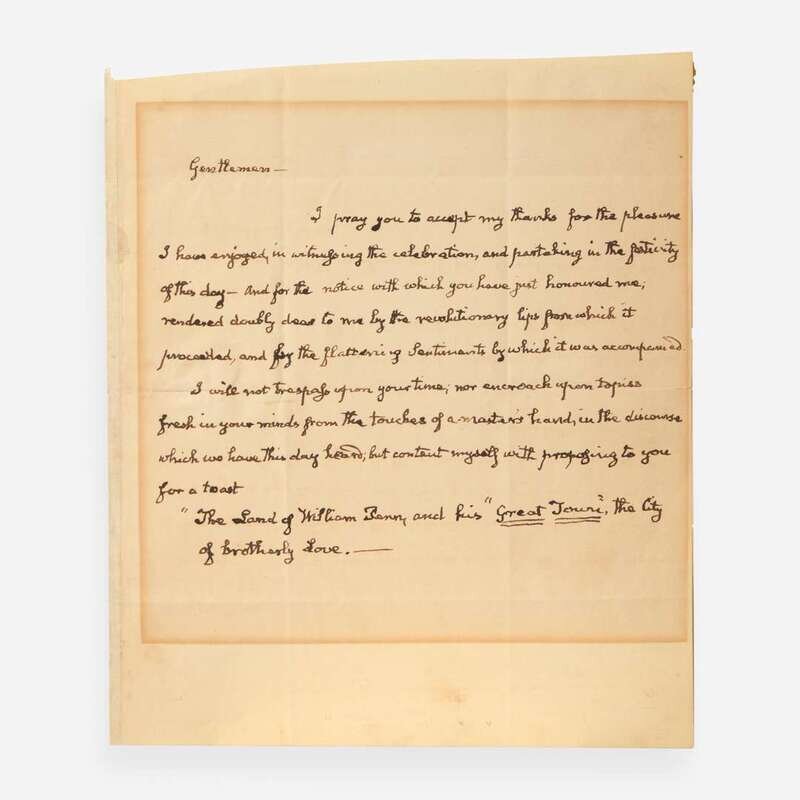 Gentlemen—
I pray you to accept my thanks for the pleasure
I have enjoyed, in witnessing the celebration, and partaking in the festivity
of this day— And for the notice with which you have just honoured me;
rendered doubly dear to me by the revolutionary lips from which it
proceeded, and by the flattering Sentiments by which it was accompanied.
I will not trespass upon your time; nor encroach upon topics
fresh in your minds from the touches of a master's hand, in the discourse
which we have this day heard; but content myself with proposing to you
for a toast
"The Land of William Penn, and his "Great Town", the City
of brotherly Love. —